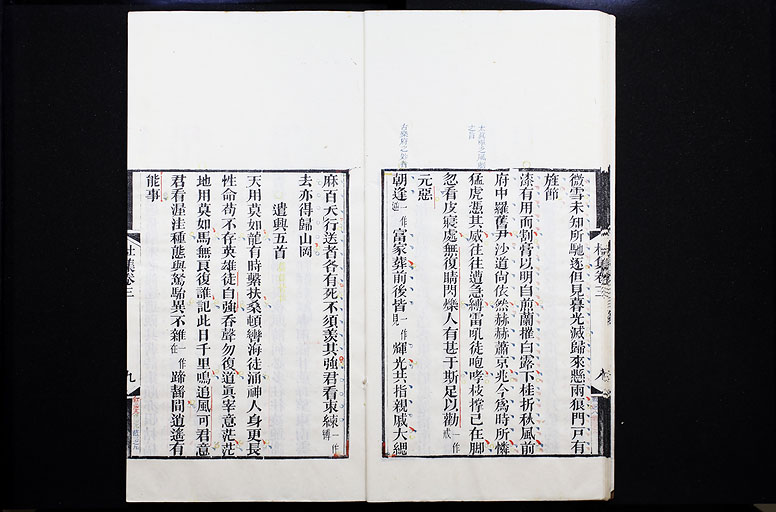 微雪未知所馳逐但見暮光滅歸來懸兩狼門戶有
旌節
漆有用而割膏以明自煎蘭摧白露下桂折秋風前
府中羅舊尹沙道尚依然赫赫蕭京兆今為時所憐
猛虎憑其威往往遭急縛雷吼徒咆哮枝撐已在腳
忽看皮寢處無復睛閃爍人有甚于斯足以勸一作戒
元惡
朝逢一作富家葬前後皆見一作輝光共指親戚大緦
麻百夫行送者各有死不須羨其強君看束練一作縛
去亦得歸山岡
遣興五首
天用莫如龍有時繫扶桑頓轡海徒涌神人身更長
性命苟不存英雄徒自強吞聲勿復道真宰意茫茫
地用莫如馬無良復誰記此日千里鳴追風可君意
君看渥洼種態與駑駘異不雜一作在蹄齧間逍遙有
能事
杜集卷三
九